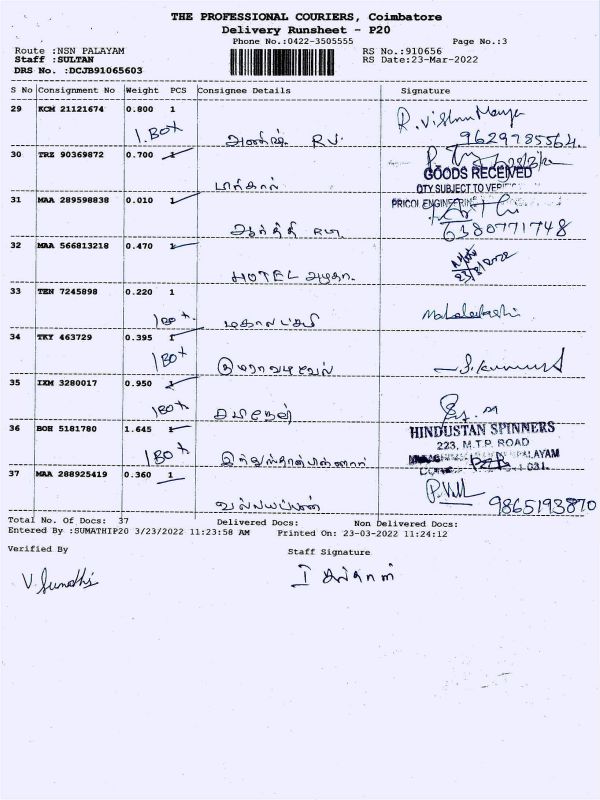 THE PROFESSIONAL COURIERS, Coimbatore
Delivery Runsheet - P20
Phone No.:0422-3505555 Page No.:3
Route :NSN PALAYAM RS No.:910656
Staff :SULTAN RS Date:23-Mar-2022
DRS No. :DCJB91065603
S No Consignment No Weight PCS Consignee Details Signature
29 KCM 21121674 0.800 1 R. Vishnu
1.Box R.V. 9629785564
30 TRZ 90369872 0.700 1
GOODS RECEIVED
QTY SUBJECT TO
31 MAA 289598838 0.010 1 PRICOL ENGINEERING
ஆர்த்தி 6380771748
32 MAA 566813218 0.470 1
HOTEL அமுதா
33 TEN 7245898 0.220 1
1 Box மகாலட்சுமி Mahalakshmi
34 TKY 463729 0.395 1
1 Box குமாரவடிவேல்
35 IXM 3280017 0.950 1
1 Box
36 BOH 5181780 1.645 1 HINDUSTAN SPINNERS
1 Box 223, M.T.P. ROAD
37 MAA 288925419 0.360 1
9865193870
Total No. Of Docs: 37 Delivered Docs: Non Delivered Docs:
Entered By :SUMATHIP20 3/23/2022 11:23:58 AM Printed On: 23-03-2022 11:24:12
Verified By Staff Signature
V. Sumathi